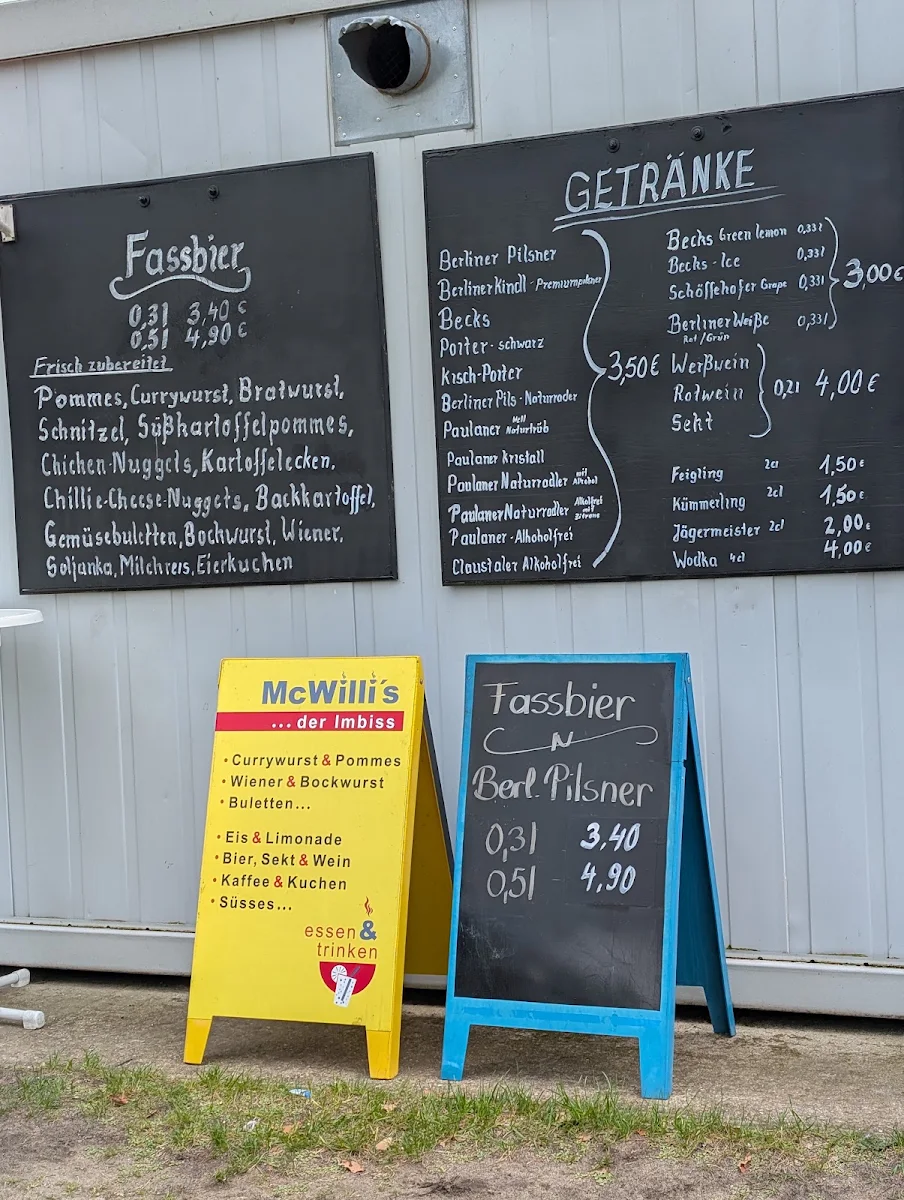 Fassbier
0,3l 3,40 €
0,5l 4,90 €
Frisch zubereitet
Pommes, Currywurst, Bratwurst,
Schnitzel, Süßkartoffelpommes,
Chicken-Nuggets, Kartoffelecken,
Chillie-Cheese-Nuggets, Backkartoffel,
Gemüsebuletten, Bockwurst, Wiener,
Soljanka, Milchreis, Eierkuchen
GETRÄNKE
Berliner Pilsner
Berliner Kindl - Premiumpilsner
Becks
Porter - schwarz
Kisch-Porter
Berliner Pils - Naturrader
Paulaner Hell Naturtrüb
Paulaner Kristall
Paulaner Naturradler mit Alkohol
Paulaner Naturradler Alkoholfrei mit Zitrone
Paulaner - Alkoholfrei
Claustaler Alkoholfrei
3,50 €
Becks Green lemon 0,33l
Becks - Ice 0,33l
Schöffehofer Grape 0,33l
Berliner Weiße 0,33l
Rot/Grün
3,00 €
Weißwein
Rotwein
Sekt
0,2l 4,00 €
Feigling 2cl 1,50 €
Kümmerling 2cl 1,50 €
Jägermeister 2cl 2,00 €
Wodka 4cl 4,00 €
McWilli's
... der Imbiss
• Currywurst & Pommes
• Wiener & Bockwurst
• Buletten...
• Eis & Limonade
• Bier, Sekt & Wein
• Kaffee & Kuchen
• Süsses...
essen &
trinken
Fassbier
Berl. Pilsner
0,3l 3,40
0,5l 4,90